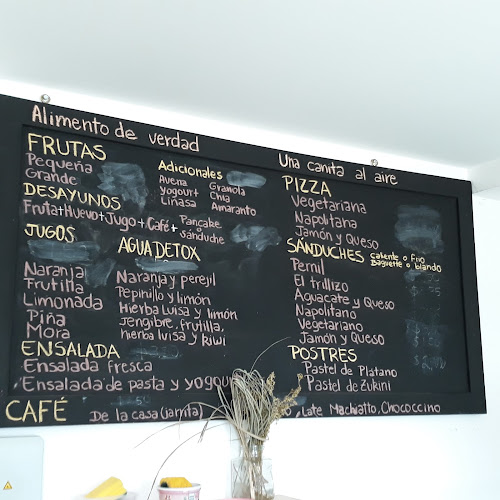 Alimento de verdad
FRUTAS
Pequeña
Grande
Adicionales
Avena
yogourt
Linasa
Granola
Chia
Amaranto
DESAYUNOS
Fruta+Huevo+Jugo+Café+ Pancake
o
Sánduche
JUGOS
Naranja
Frutilla
Limonada
Piña
Mora
AGUA DETOX
Naranja y perejil
Pepinillo y limón
Hierba luisa y limón
Jengibre, frutilla,
hierba luisa y kiwi
ENSALADA
Ensalada fresca
Ensalada de pasta y yogourt
CAFÉ
De la casa (jarrita)
Late Machiatto, Chococcino
Una canita al aire
PIZZA
Vegetariana
Napolitana
Jamón y Queso
SÁNDUCHES caliente o frio
Baguette o blando
Pernil
El trillizo
Aguacate y Queso
Napolitano
Vegetariano
Jamón y Queso
POSTRES
Pastel de Platano
Pastel de Zukini